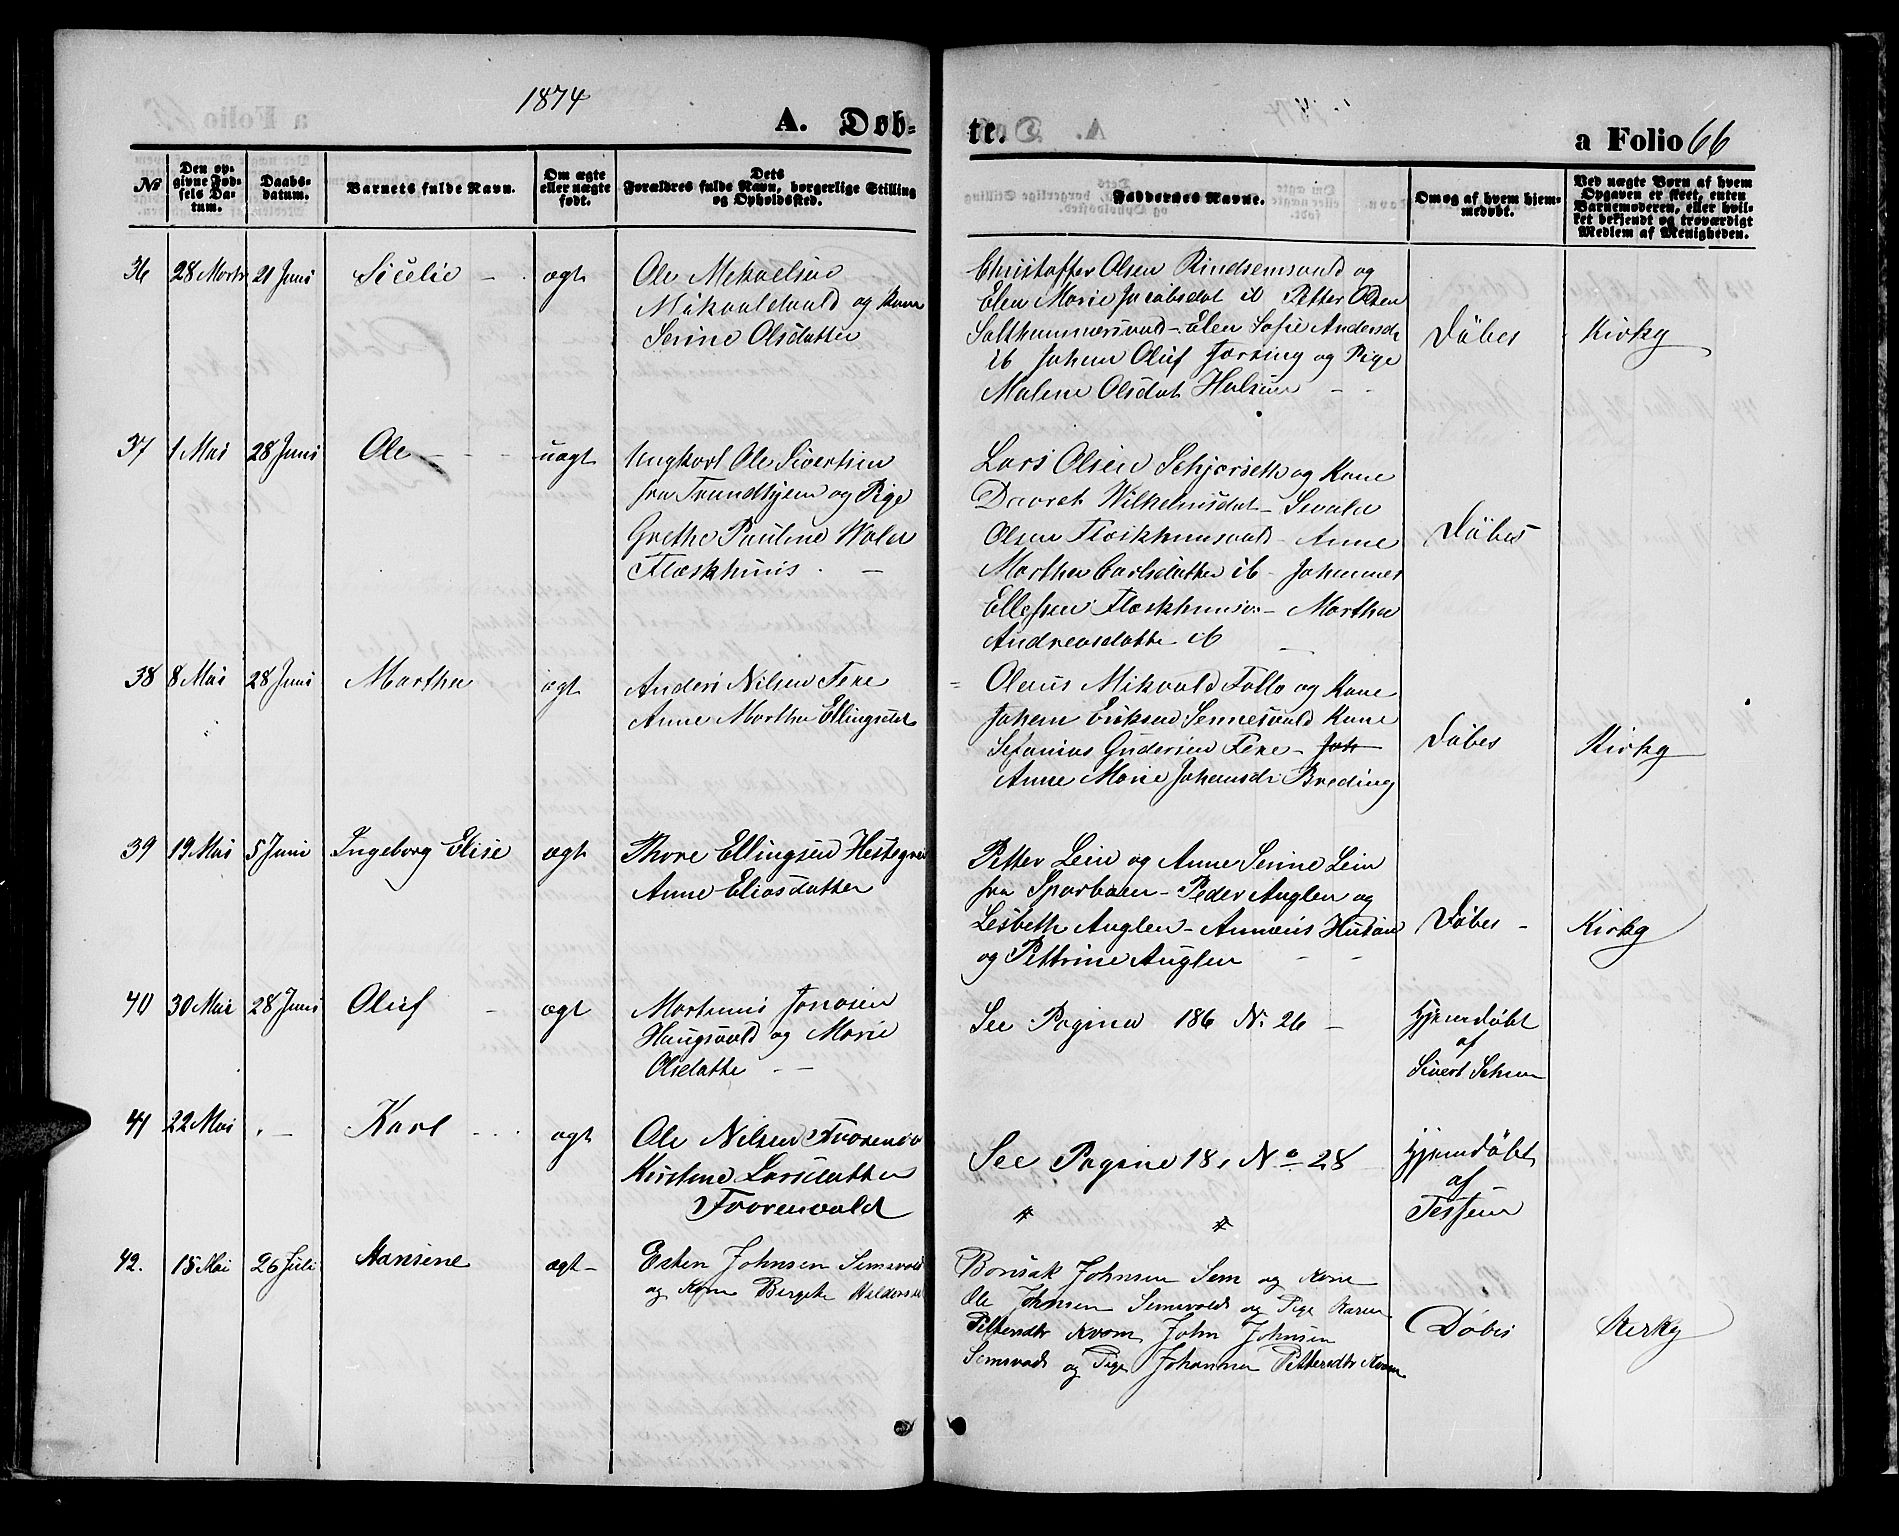 1874
A. Døb-
te.
a Folio 66
No
Den op-
givne Fød-
sels Da-
tum.
Daabs-
datum.
Barnets fulde Navn.
Om ægte
eller uægte
født.
Dets
Forældres fulde Navn, borgerlige Stilling
og Opholdssted.
Faddernes Navne.
Om og af hvem hjem-
medøbt.
Ved uægte Børn af hvem
Opgaven er skeet, enten
Barnemoderen, eller hvil-
ket bekjendt og troværdigt
Medlem af Menigheden.
36 28 Marts 21 Juni Sicelie - ægt
Ole Mekaelsen
og Kone
Serine Olsdatter
Christoffer Olsen Rindsemvald og
Elen Marie Jacobsdat ib Petter Olsen
Salthammersvald - Elen Sofie Andersdt
ib Johan Oluf Forsing og Pige
Malene Olsdat Halsen - -
Døbes Kirky
37 1 Mai 28 Juni Ole - - - uægt
Ungkarl Ole Sivertsen
fra Trundhjem og Pige
Grethe Pauline
Flæskhuus . -
Lars Olsen og Kone
Wilhelmsdat -
Olsen - Anne
Martha Carlsdatter ib - Johannes
Ellefsen - Martha
Andreasdatte ib
Døbes
38 8 Mai 28 Juni Martha ægt
Anders Nilsen Fere
Anne Martha Ellingsdat
Olaus Mikvold Follo og Kone
Johan Eriksen Sennesvald Kone
Sefanias Gudersen Fere - Joh
Anne Marie Johansdt Breding
Døbes Kirky
39 19 Mai 5 Juni Ingeborg Elise ægt
Thore Ellingsen
Anne Eliasdatter
Petter Lein og Anne Serine Lein
fra Sparbuen - Peder Auglen og
Lesbeth Auglen -
og Pettrine Auglen - -
Døbes - Kirky
40 30 Mai 28 Juni Oluf - ægt
Martinus Jonasen
Haugsvald og Marie
Olsdatte - -
See Pagina 186 N. 26 -
Hjemdøbt
af
Sivert
41 22 Mai . - Karl - . ægt
Ole Nilsen
Kirstine Larsdatter
See Pagine 18, No 28
Hjemdøbt
af
42. 15 Mai 26 Juli Hansine ægt -
Esten Johnsen Semsvald
og Kone Bergete
Bonsak Johnsen Sem og Kone
Ole Johnsen Semsvald og Pige Karen
Pettersdtr Kvam John Johnsen
Semsvald og Pige Johanna Pettersdtr Kvam
Døbes Kerky